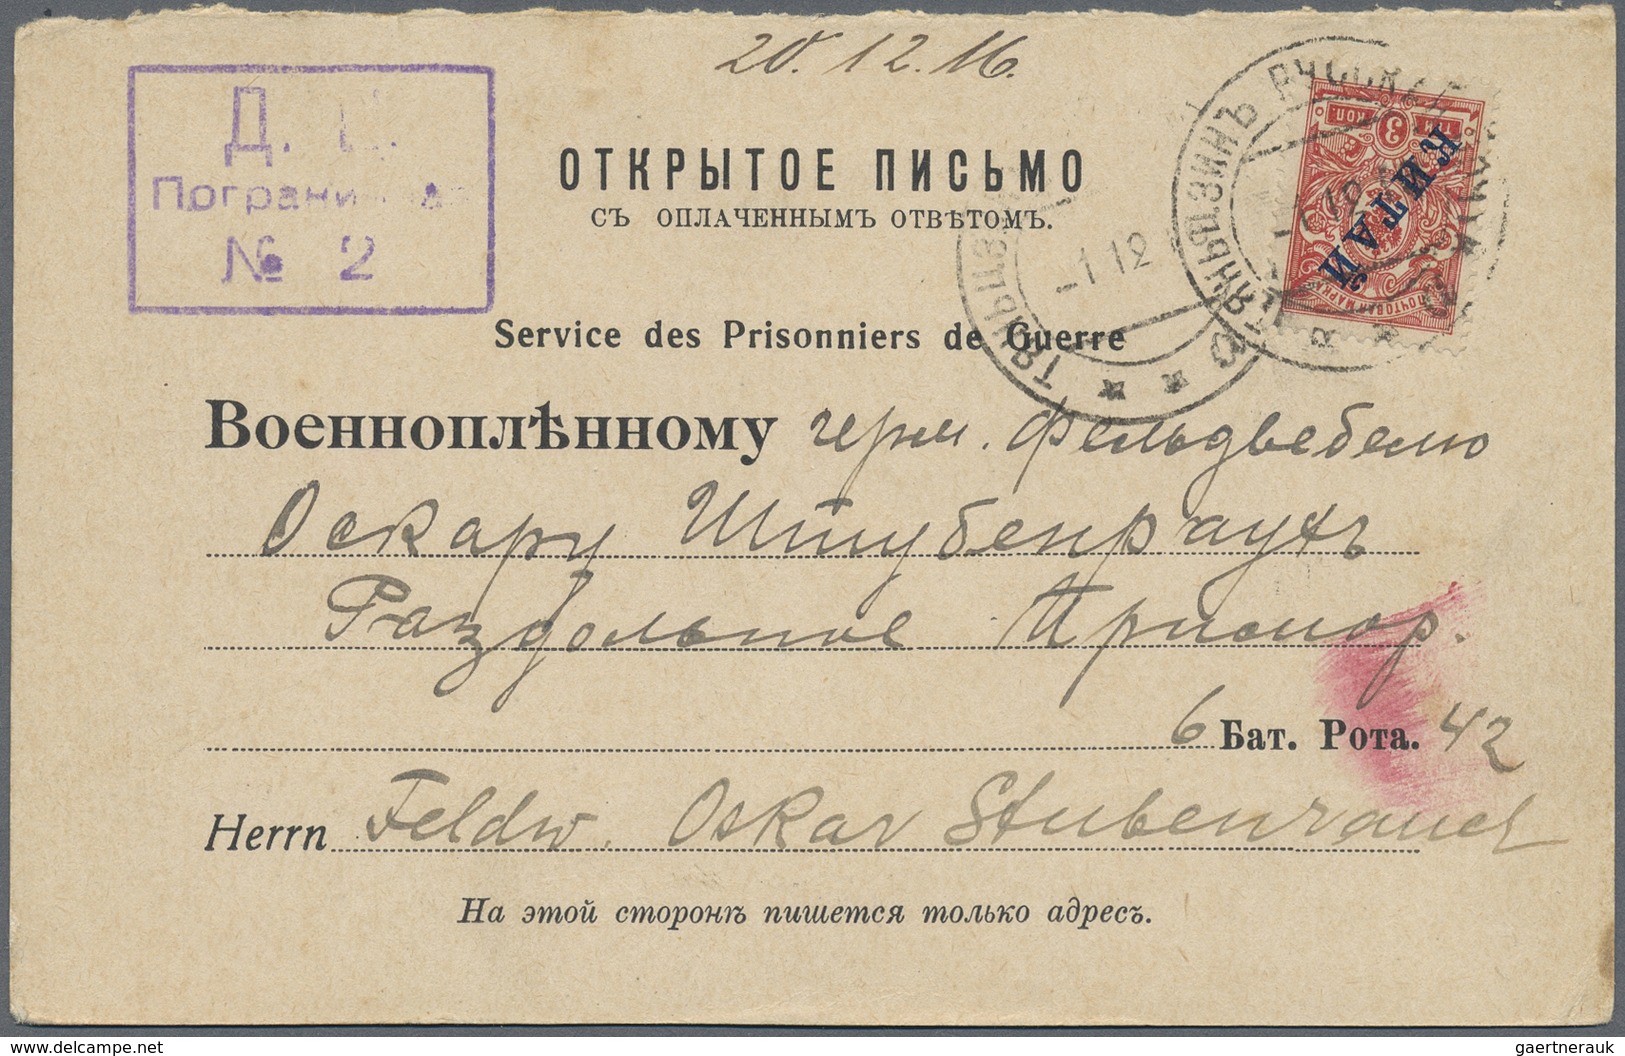 20. 12. 16.
Д. Ц.
Пограничная
№ 2
ОТКРЫТОЕ ПИСЬМО
СЪ ОПЛАЧЕННЫМЪ ОТВѢТОМЪ.
ТРИ КОП
3
ПОЧТОВАЯ МАРКА
КИТАЙ
ТЯНЬЦЗИНЪ РУССКАЯ
ТЯНЬЦЗ
-1 12
Service des Prisonniers de Guerre
Военноплѣнному герм. фельдвебелю
Оскару Штубенраухъ
Раздольное Примор.
6 Бат. Рота. 42
Herrn Feldw. Oskar Stubenrauch
На этой сторонѣ пишется только адресъ.
delcampe.net
gaertnerauk